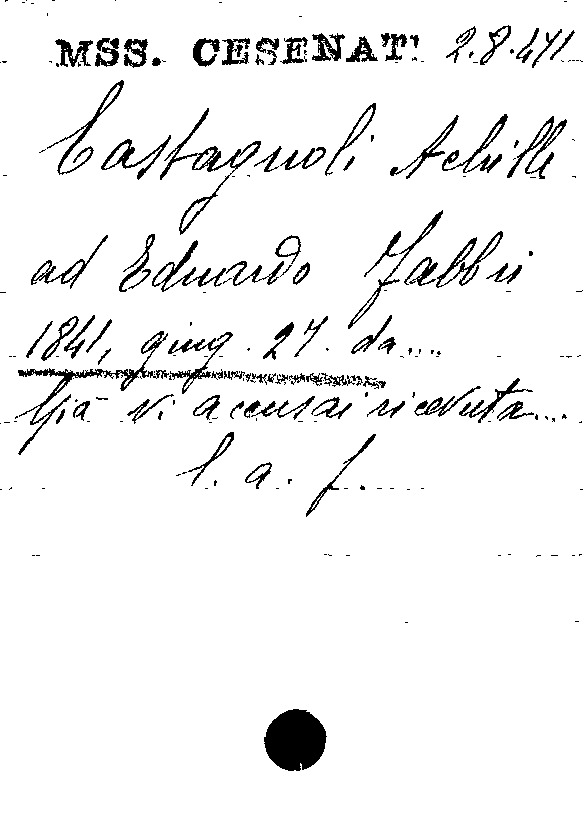 MSS. CESENATI 2.8.471
Castagnoli Achille
ad Eduardo Fabbri
1841, giug. 27. da....
Già vi accusai ricevuta...
l. a. f.